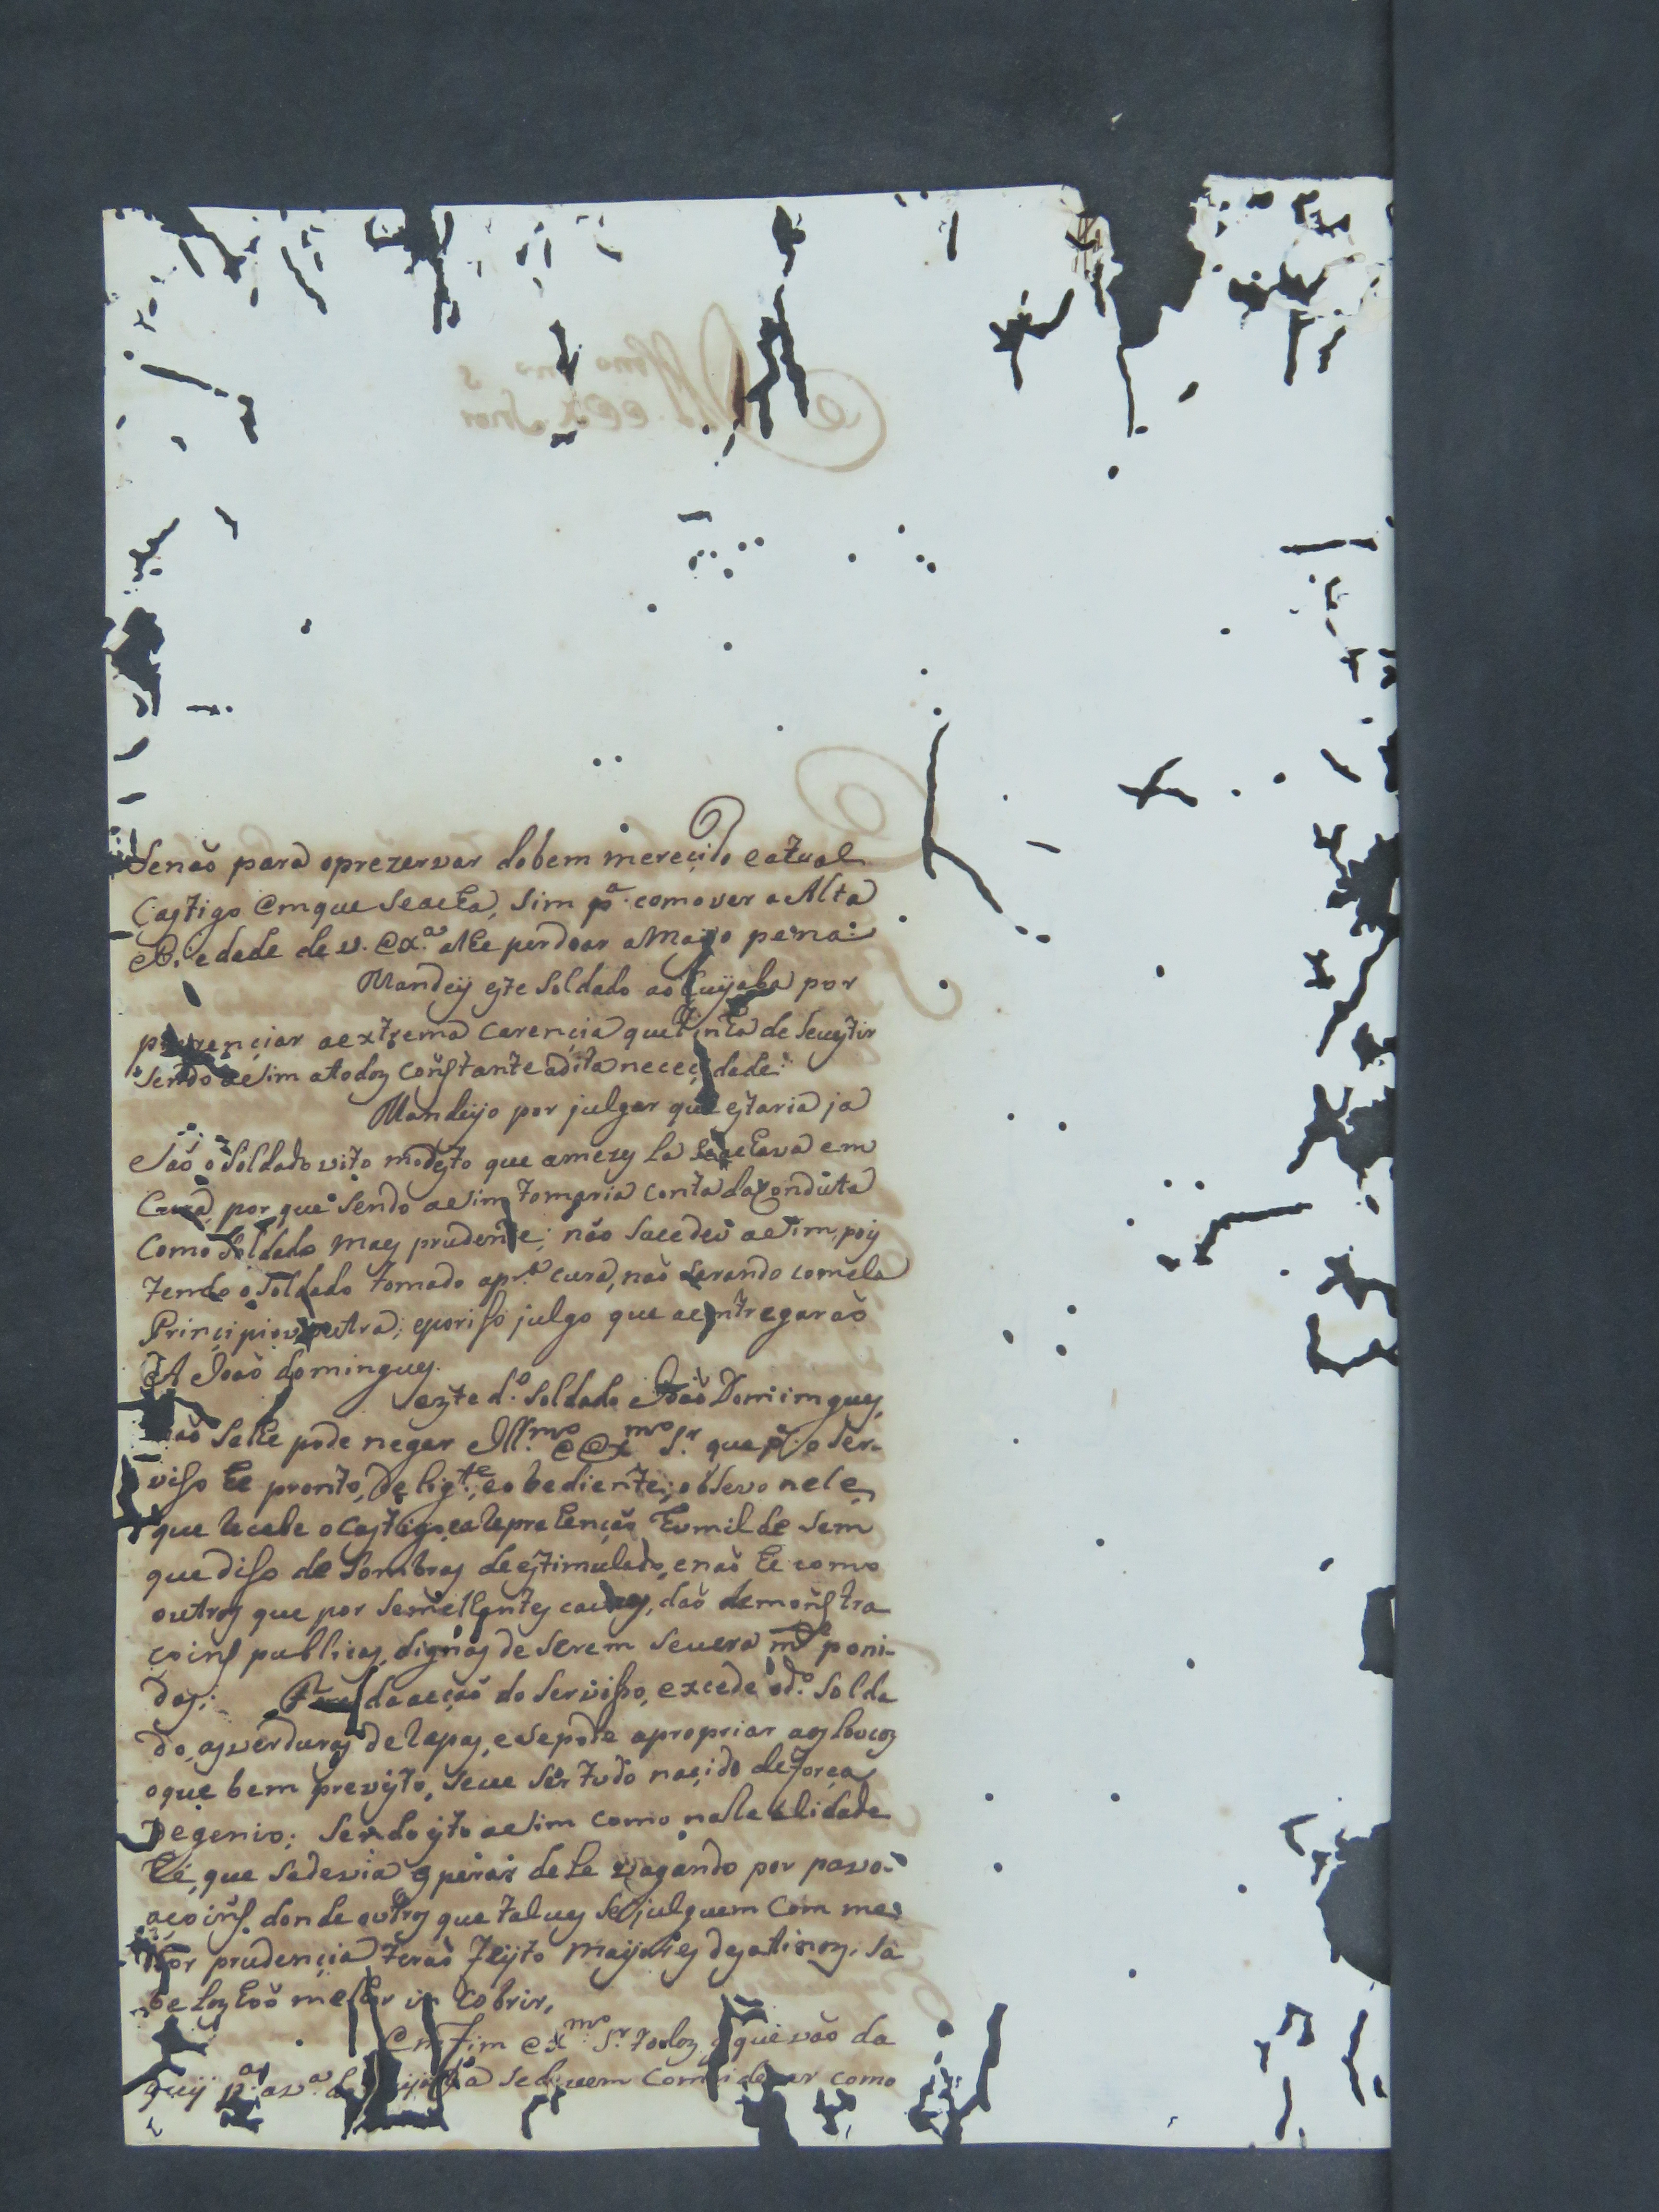 Senaõ para oprezervar dobem mereçido eatual
Castigo emque seacha, sim p.ª comover a Alta
Piedade de v. Ex.ª alhe perdoar a Mayo pena:
Mandeÿ este soldado ao Cuÿaba por
prezençiar aextrema carençia que tinha de sevestir
sendo asim atodos Constante adita neceçidade:
Mandeÿo por julgar que estaria ja
saõ o soldado vito modesto que amezes la seachava em
Cura, por que sendo asim tomaria conta da Conduta
Como soldado mais prudente; não sucedeu asim, pois
tendo o soldado tomado apr.ª cura, naõ sarando comela
Principiou outra; eporiso julgo que aentregaraõ
A Joaõ domingues.
este d.º soldado Joaõ Domimgues,
naõ selhe pode negar Ill.mo e Ex.mo S.r que p.ª o ser-
viso he pronto, delig.te, eobediente; observo nele
que recebe o Castigo, ea reprehençaõ humilde sem
que diso de sombras deestimulado, enaõ he como
outros que por semelhantes causas, daõ demonstra
çoins publicas, dignas de serem severa m.te poni-
das: daacçaõ do serviso, excede od.º solda
do, asverduras de rapas, esepode apropriar aos loucos
oque bem previsto, deve ser tudo naçido defforça
Degenio; sendo isto asim como na realidade
hé, que sedevia esperar dele vagando por povo-
açoins. donde outros que talves sejulguem Com me-
lhor prudençia teraõ feÿto maÿores desatinos, sa
belos haõ melhor in cobrir,
Emfim ex.mo S.r todos q que vaõ da
quÿ p.ª as v.as do Cuÿaba sedevem Considerar como